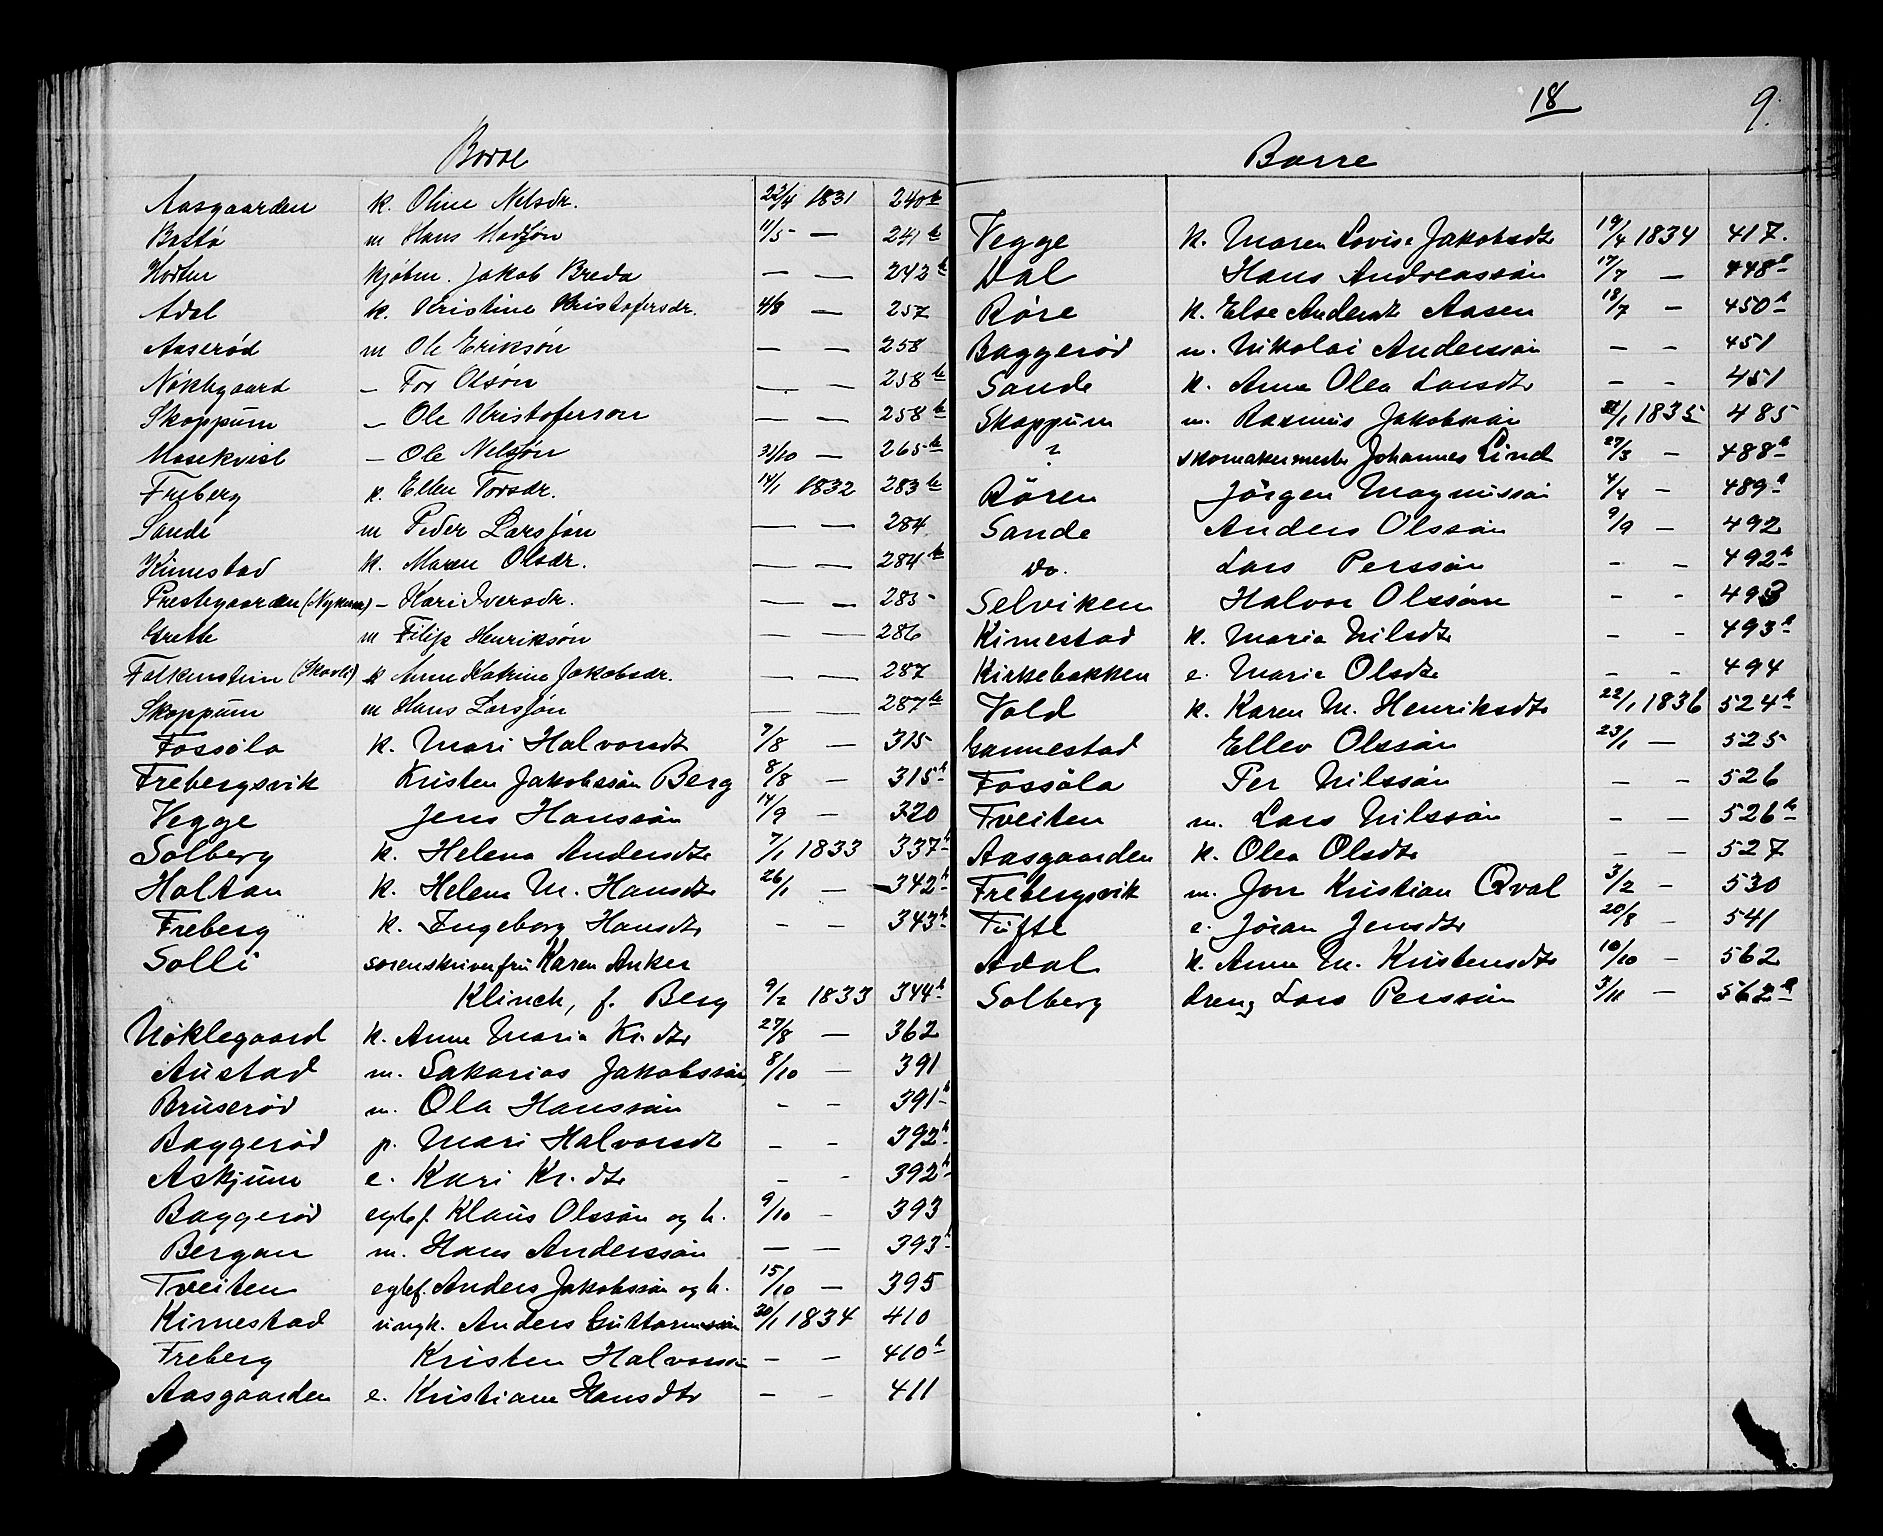 Borre
Aasgaarden k. Oline Nilsdr. 22/4 1831 240b
Bastö m Hans Madsøn 11/5 — 241b
Horten kjøbm. Jakob Breda — — 242b
Adal k. Kristine Kristofersdr. 4/8 — 257
Aaserød m Ole Eriksøn — — 258
Nøklegaard – Tor Olsøn — — 258b
Skoppum – Ole Kristoferson — — 258b
Masekvisl – Ole Nelsøn 31/10 — 265b
Freberg k. Ellen Torsdr. 14/1 1832 283b
Sande m Peder Larsføn — — 284
Kimestad k. Maren Olsdr. — — 284b
Prestegaarden (Nykirke) – Kari Iversdr. — — 285
Grette m Filip Henriksøn — — 286
Falkenstein (Skavli) k Anne Katrine Jakobsdr. — — 287
Skoppum m Hans Larsføn — — 287b
Fossóla k. Mari Halvorsdt 7/8 — 315
Frebergsvik Kristen Jakobssön Berg 8/8 — 315b
Vegge Jens Hanssön 14/9 — 320
Solberg k. Helena Andersdtr 7/1 1833 337b
Holtan k. Helene M. Hansdtr 26/1 — 342b
Freberg k. Ingeborg Hansdtr – – 343b
Solli sorenskriverfru Karen Anker
Klinck, f. Berg 9/2 1833 344b
Nöklegaard k. Anne Maria Kr.dtr 27/8 — 362
Austad m. Sakarias Jakobssön 8/10 — 391
Bruserød m. Ola Hanssön – – 391b
Baggerød p. Mari Halvorsdt – – 392b
Askjum e. Kari Kr.dtr – – 392b
Baggerød egtef. Klaus Olssön og h. 9/10 – 393
Bergan m. Hans Anderssön — — 393b
Tveiten egtef. Anders Jakobssön og h. 15/10 – 395
Kirnestad ungk. Anders Guttormssön 30/1 1834 410
Freberg Kristen Halvorssön – – 410b
Aasgaarden e. Kristiane Hansdtr – – 411
18 9.
Borre
Vegge k. Maren Lovise Jakobsdtr 19/4 1834 417.
Dal Hans Andreassön 17/7 — 448b
Röre k. Else Andersdtr Aasen 18/7 — 450b
Baggerød m. Nikolai Anderssön – – 451
Sande k. Anne Olea Larsdtr – – 451
Skoppum m. Rasmus Jakobssön /1 1835 485
? skomakermester Johannes Lind 27/3 – 488b
Rören Jörgen Magnussön 4/4 – 489b
Sande Anders Olssön 9/9 – 492
Do. Lars Perssön – – 492b
Selviken Halvor Olssön – – 493
Kirnestad k. Maria Nilsdtr – – 493b
Kirkebakken e. Marie Olsdtr – – 494
Vold k. Karen M. Henriksdtr 22/1 1836 524b
Gannestad Ellev Olssön 23/1 — 525
Fossóla Per Nilssön – – 526
Tveiten m. Lars Nilssön – – 526b
Aasgaarden k. Olea Olsdtr – – 527
Frebergsvik m. Jon Kristian Qval 3/2 – 530
Tufte e. Jöran Jensdtr 20/8 – 541
Adal k. Anne M. Kristensdtr 10/10 – 562
Solberg dreng Lars Perssön 3/11 — 562b